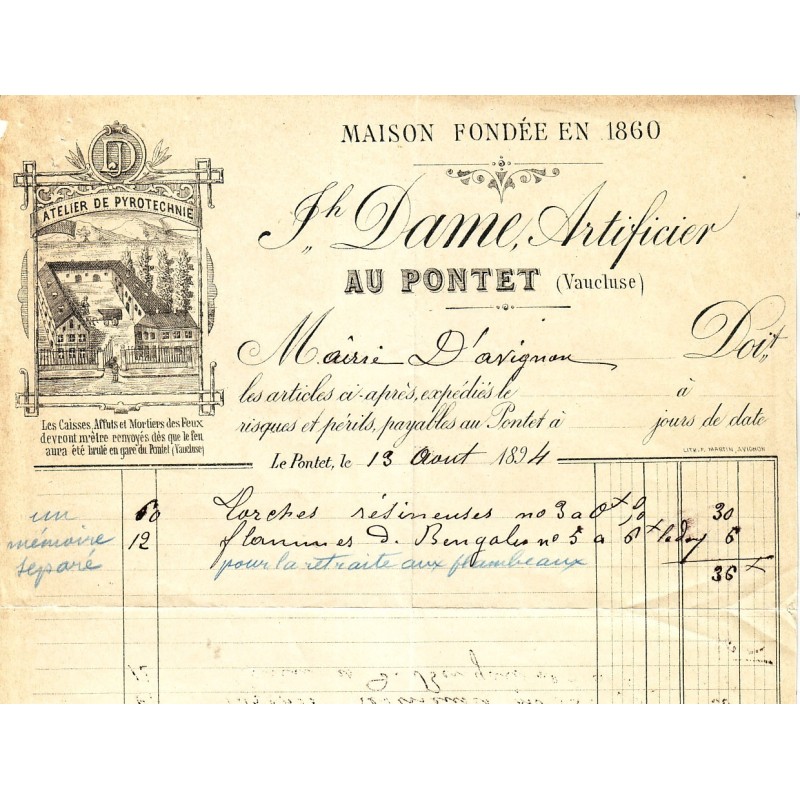 MAISON FONDÉE EN 1860
JD
ATELIER DE PYROTECHNIE
Jh Dame, Artificier
AU PONTET (Vaucluse)
Mairie D'avignon Doit
les articles ci-après, expédiés le à
risques et périls, payables au Pontet à jours de date
Les Caisses, Affuts et Mortiers des Feux
devront m'être renvoyés dès que le feu
aura été brulé en gare du Pontet (Vaucluse)
LITH. F. MARTIN, AVIGNON
Le Pontet, le 13 Aout 1894
un mémoire separé
60 Torches résineuses no 3 a 0x50 30
12 flammes d. Bengales no 5 a 6x 6
pour la retraite aux flambeaux
36 x